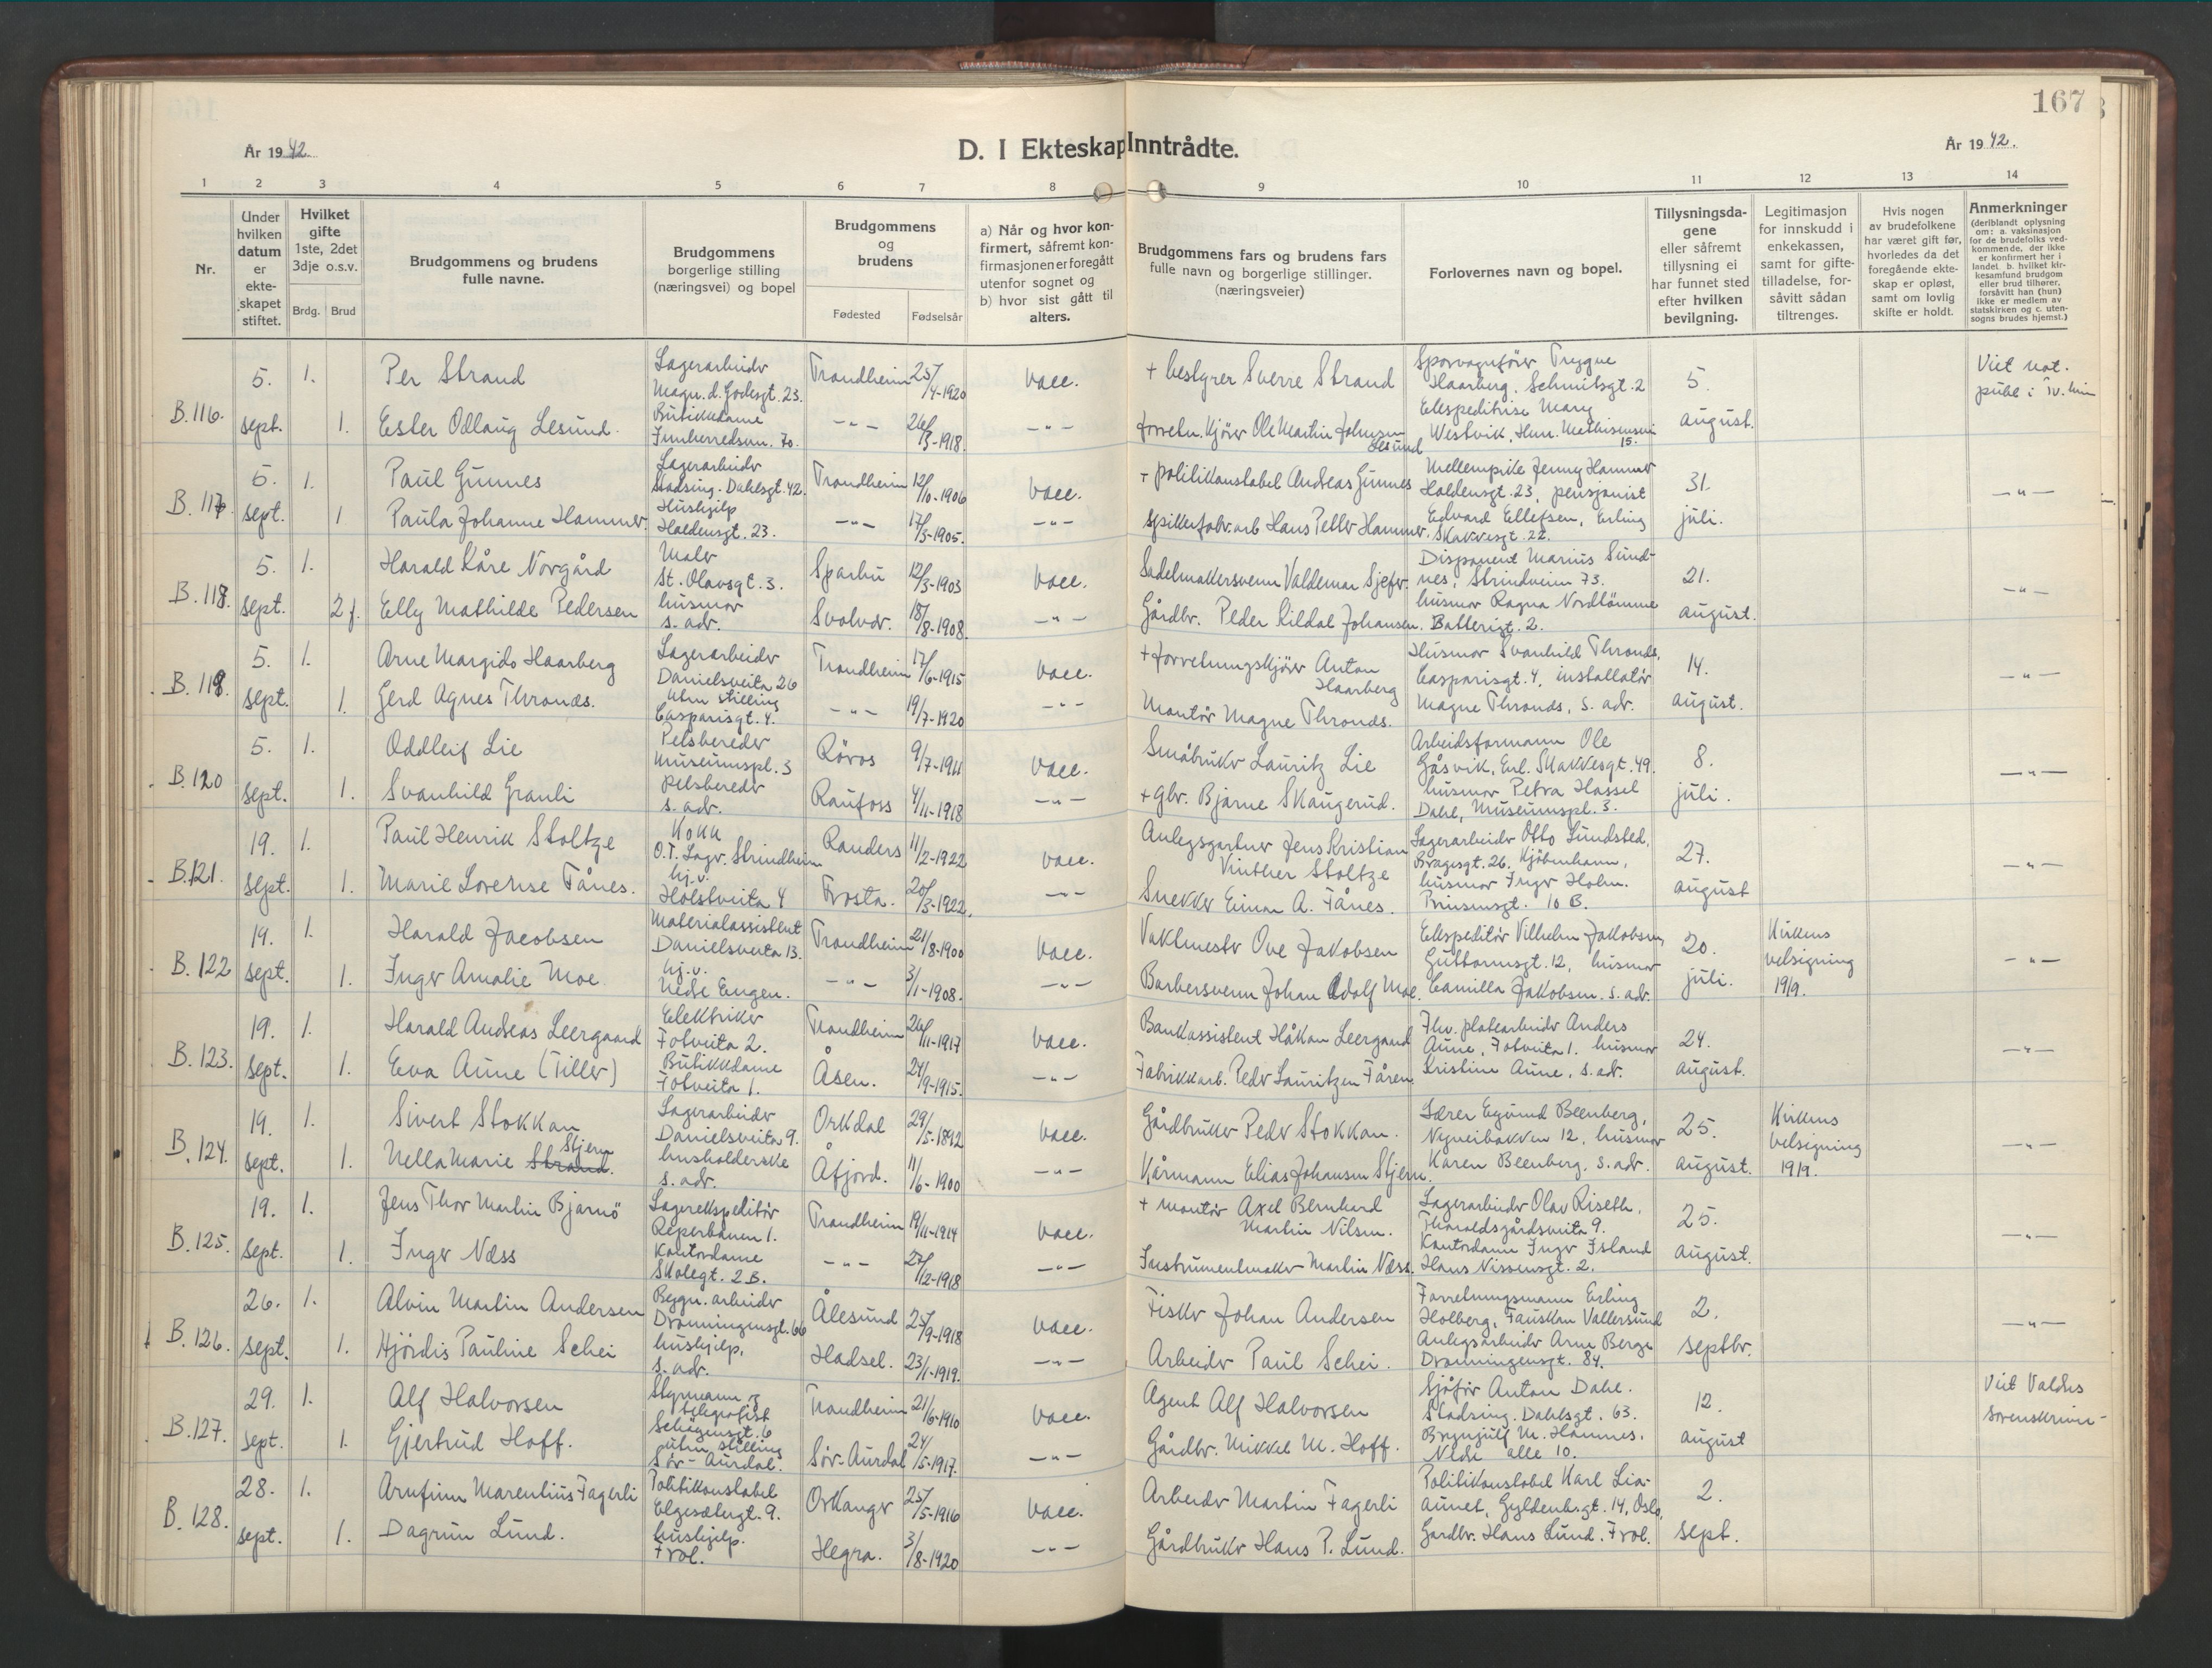 167
År 1942.
D. I Ekteskap Inntrådte.
År 1942.
1 2 3 4 5 6 7 8 9 10 11 12 13 14
Nr.
Under hvilken datum er ekte-skapet stiftet.
Hvilket gifte 1ste, 2det 3dje o.s.v.
Brdg. Brud
Brudgommens og brudens fulle navne.
Brudgommens borgerlige stilling (næringsvei) og bopel
Brudgommens og brudens
Fødested Fødselsår
a) Når og hvor kon-firmert, såfremt kon-firmasjonen er foregått utenfor sognet og b) hvor sist gått til alters.
Brudgommens fars og brudens fars fulle navn og borgerlige stillinger. (næringsveier)
Forlovernes navn og bopel.
Tillysningsda-gene eller såfremt tillysning ei har funnet sted efter hvilken bevilgning.
Legitimasjon for innskudd i enkekassen, samt for gifte-tilladelse, for-såvitt sådan tiltrenges.
Hvis nogen av brudefolkene har været gift før, hvorledes da det foregående ekte-skap er opløst, samt om lovlig skifte er holdt.
Anmerkninger (deriblandt oplysning om: a. vaksinasjon for de brudefolks ved-kommende, der ikke er konfirmert her i landet b. hvilket kir-kesamfund brudgom eller brud tilhører, forsåvitt han (hun) ikke er medlem av statskirken og c. uten-sogns brudes hjemst.)
B.116. 5. sept. 1. Per Strand
Lagerarbeider Magn. d. Godesgt. 23.
Trondheim 25/4-1920 vacc.
+ bestyrer Sverre Strand
Sporvognfører Trygve Haarberg, Schmitsgt. 2
5. august.
Viet not. publ. i Tr.heim
1. Ester Odlaug Lesund.
Butikkdame Innherredsvn. 70.
-"- 26/3-1918. -"-
forretn.kjörer Ole Martin Johnsen Lesund
Ekspeditrise Mary Westvik, Hen. Mathisensvei 15.
B.117 5. sept. 1. Paul Gunnes
Lagerarbeider Stadsing. Dahlsgt. 42.
Trondheim 12/10-1906 vacc.
+ politikonstabel Andreas Gunnes
Mellempike Jenny Hammer Haldensgt. 23, pensjonist
31. juli.
-"-
1 Paula Johanne Hammer.
Hushjelp Haldensgt. 23.
-"- 17/3-1905. -"-
Spikerfabr.arb Hans Petter Hammer.
Edvard Ellefsen, Erling Skakkesgt. 22.
B.118. 5. sept. 1. Harald Kåre Norgård
Maler St. Olavsgt. 3.
Sparbu 12/3-1903 vacc.
Sadelmakersvenn Valdemar
Disponent Marius Sund-nes, Strindveien 73.
21. august.
-"-
2 f. Elly Mathilde Pedersen
husmor s. adr.
Svolvær. 18/8-1908. -"-
Gårdbr. Peder Kildal Johansen.
husmor Ragna Nordtömme Batterigt. 2.
B.119. 5. sept. 1. Arne Margido Haarberg
Lagerarbeider Danielsveita 26
Trondheim 17/6-1915 vacc.
+ forretningskjörer Anton Haarberg
Husmor Svanhild Thronds, Casparisgt. 4, installatör
14. august.
-"-
1. Gerd Agnes Thronds.
uten stilling Casparisgt. 4.
-"- 19/7-1920 -"-
Montör Magne Thronds.
Magne Thronds, s. adr.
B.120 5. sept. 1. Oddleif Lie
Pelsbereder Museumspl. 3
Röros 9/7-1911 vacc.
Småbruker Lauritz Lie
Arbeidsformann Ole Gåsvik, Erl. Skakkesgt. 49.
8. juli.
-"-
1. Svanhild Granli
pelsbereder s. adr.
Raufoss 4/11-1918 -"-
+ gbr. Bjarne Skaugerud.
husmor Petra Hassel Dahl, Museumspl. 3.
B.121. 19. sept. 1. Paul Henrik Stoltze
Kokk O.T. Lager. Strindheim
Randers 11/2-1922 vacc.
Anlegsgartner Jens Kristian Vinther Stoltze
Lagerarbeider Otto Lundsted, Bragesgt. 26. Kjöbenhavn,
27. august
-"-
1. Marie Lovense Fånes.
hj.v. Holstveita 4
Frosta. 20/3-1922. -"-
Snekker Einar A. Fånes.
husmor Inger Holm. Prinsensgt. 10 B.
B.122 19. sept. 1. Harald Jacobsen
Materialassistent Danielsveita 13.
Trondheim 21/8-1900 vacc.
Vaktmester Ove Jakobsen
Ekspeditör Vilhelm Jakobsen Guttormsgt. 12, husmor
20. juli.
Kirkens velsigning 19/9.
-"-
1. Inger Amalie Moe
hj.v. Nedre Eugen.
-"- 3/1-1908. -"-
Barbersvenn Johan Adolf Moe.
Camilla Jakobsen. s. adr.
B.123. 19. sept. 1. Harald Andreas Leergaard
Elektriker Fotveita 2.
Trondheim 26/11-1917 vacc.
Bankassistent Håkon Leergaard
Fhv. platearbeider Anders Aune, Fotveita 1. husmor
24. august.
-"-
1. Eva Aune (Tiller)
Butikkdame Fotveita 1.
Åsen. 24/9-1915. -"-
Fabrikkarb. Peder Lauritzen Fåren.
Kristine Aune, s. adr.
B.124. 19. sept. 1. Sivert Stokkan
Lagerarbeider Danielsveita 9.
Orkdal 29/5-1892 vacc.
Gårdbruker Peder Stokkan.
Lærer Egund Beenberg, 12, husmor
25. august.
Kirkens velsigning 19/9.
-"-
1. Nella Marie Strand. Stjern
husholderske s. adr.
Åfjord. 11/6-1900 -"-
Kårmann Elias Johansen Stjern.
Karen Beenberg, s. adr.
B.125. 19. sept. 1. Jens Thor Martin Bjarnö
Lagerekspeditör Reperbanen 1.
Trondheim 19/11-1914 vacc.
+ montör Axel Bernhard Martin Nilsen.
Lagerarbeider Olav Riseth, Tharaldsgårdsveita 9.
25. august.
-"-
1. Inger Næss
Kontordame Skolegt. 2B.
-"- 27/12-1918 -"-
Instrumentmaker Martin Næss.
Kontordame Inger Island Hans Nissensgt. 2.
B.126. 26. sept. 1. Alvin Martin Andersen
Bygn. arbeider Dronningensgt. 66
Ålesund 25/9-1918 vacc.
Fisker Johan Andersen
Forretningsmann Erling Holberg, Fauskan Vallersund
2. septbr.
-"-
1. Hjördis Pauline Schei
hushjelp, s. adr.
Hadsel. 23/1-1919. -"-
Arbeider Paul Schei.
Anlegsarbeider Arne Berge Dronningensgt. 84.
B.127. 29. sept. 1. Alf Halvorsen
Styrmann og telegrafist Schögensgt. 6
Trondheim 21/6-1910 vacc.
Agent Alf Halvorsen
Sjåför Anton Dahl. Stadsing. Dahlsgt. 63.
12. august
Viet Valdres sorenskriver-
1. Gjertrud Hoff.
uten stilling Sör-Aurdal.
Sör-Aurdal 24/5-1917. -"-
Gårdbr. Mikkel M. Hoff.
Brynjulf M. Hamnes, Nedre alle 10.
B.128. 28. sept. 1. Arnfinn Marentius Fagerli
Politikonstabel Elgesætergt. 9.
Orkanger 25/5-1916 vacc.
Arbeider Martin Fagerli
Politikonstabel Karl Lia-aunet, Gyldenl.gt. 14, Oslo,
2. sept.
1. Dagrun Lund.
hushjelp. Frol.
Hegra. 3/8-1920 -"-
Gårdbruker Hans P. Lund.
Gardbr. Hans Lund. Frol.